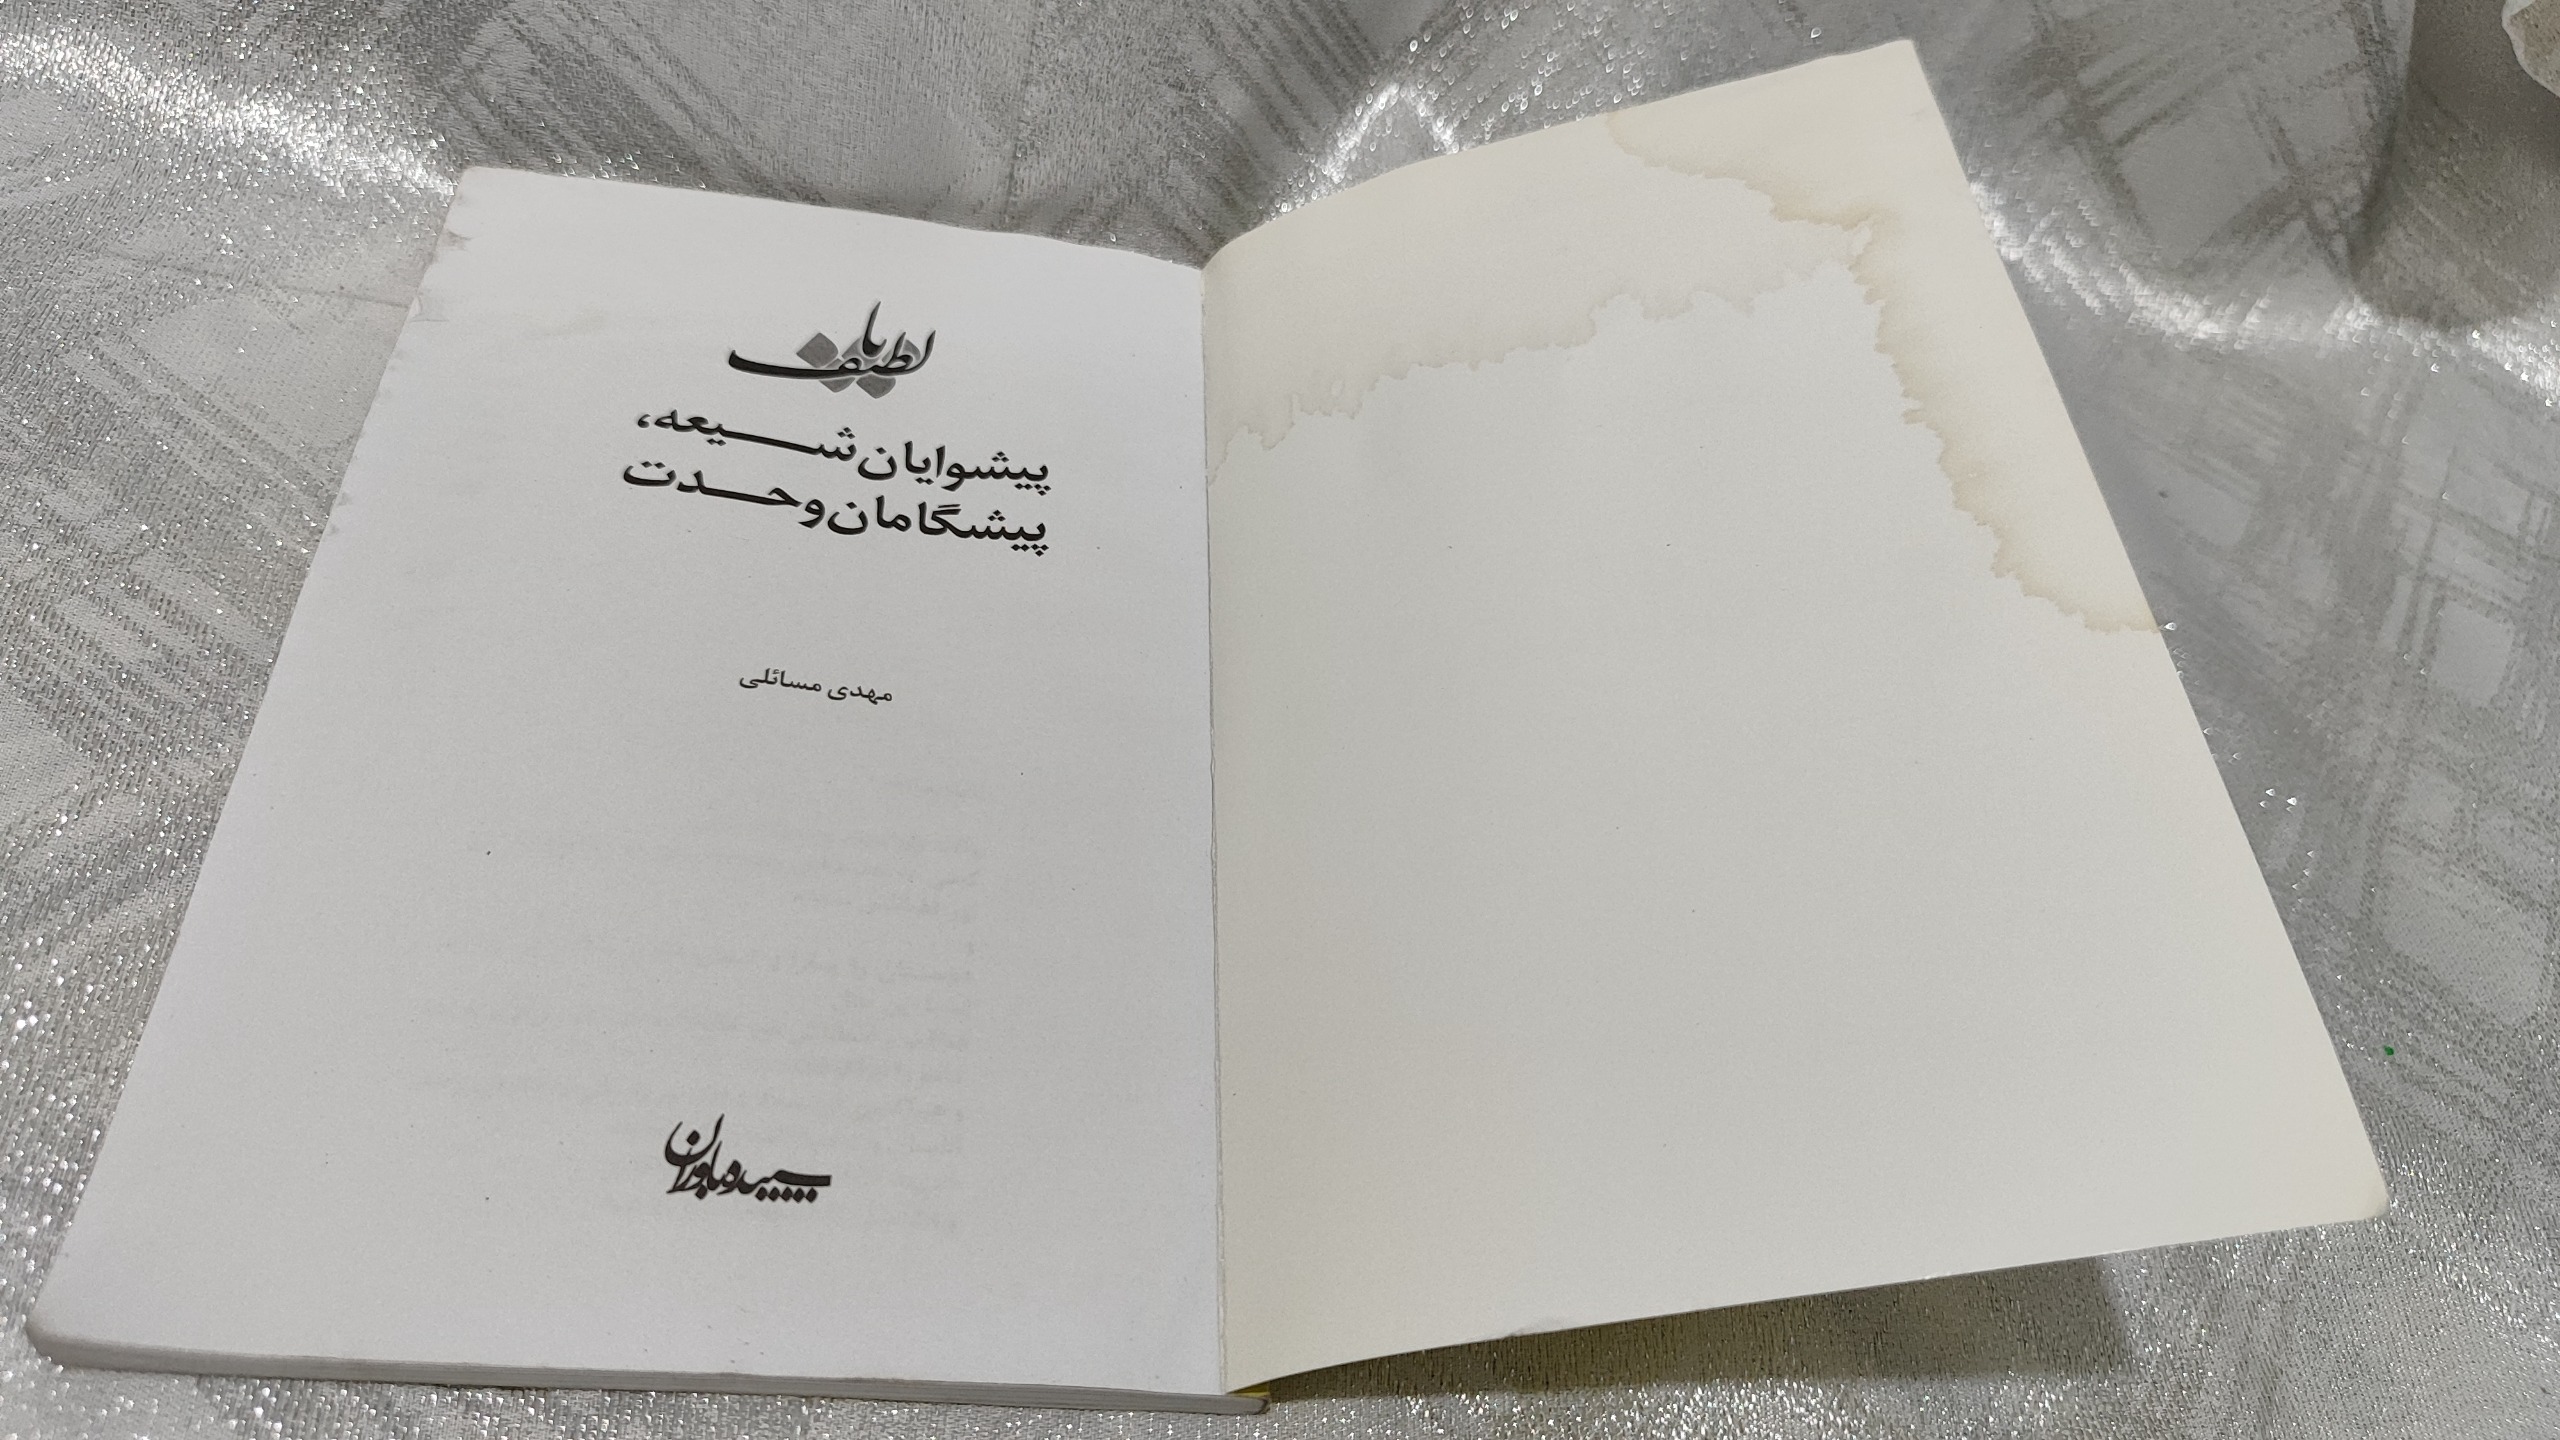 یا لطیف
پیشوایان شیعه،
پیشگامان وحدت
مهدی مسائلی
سپیده باوران